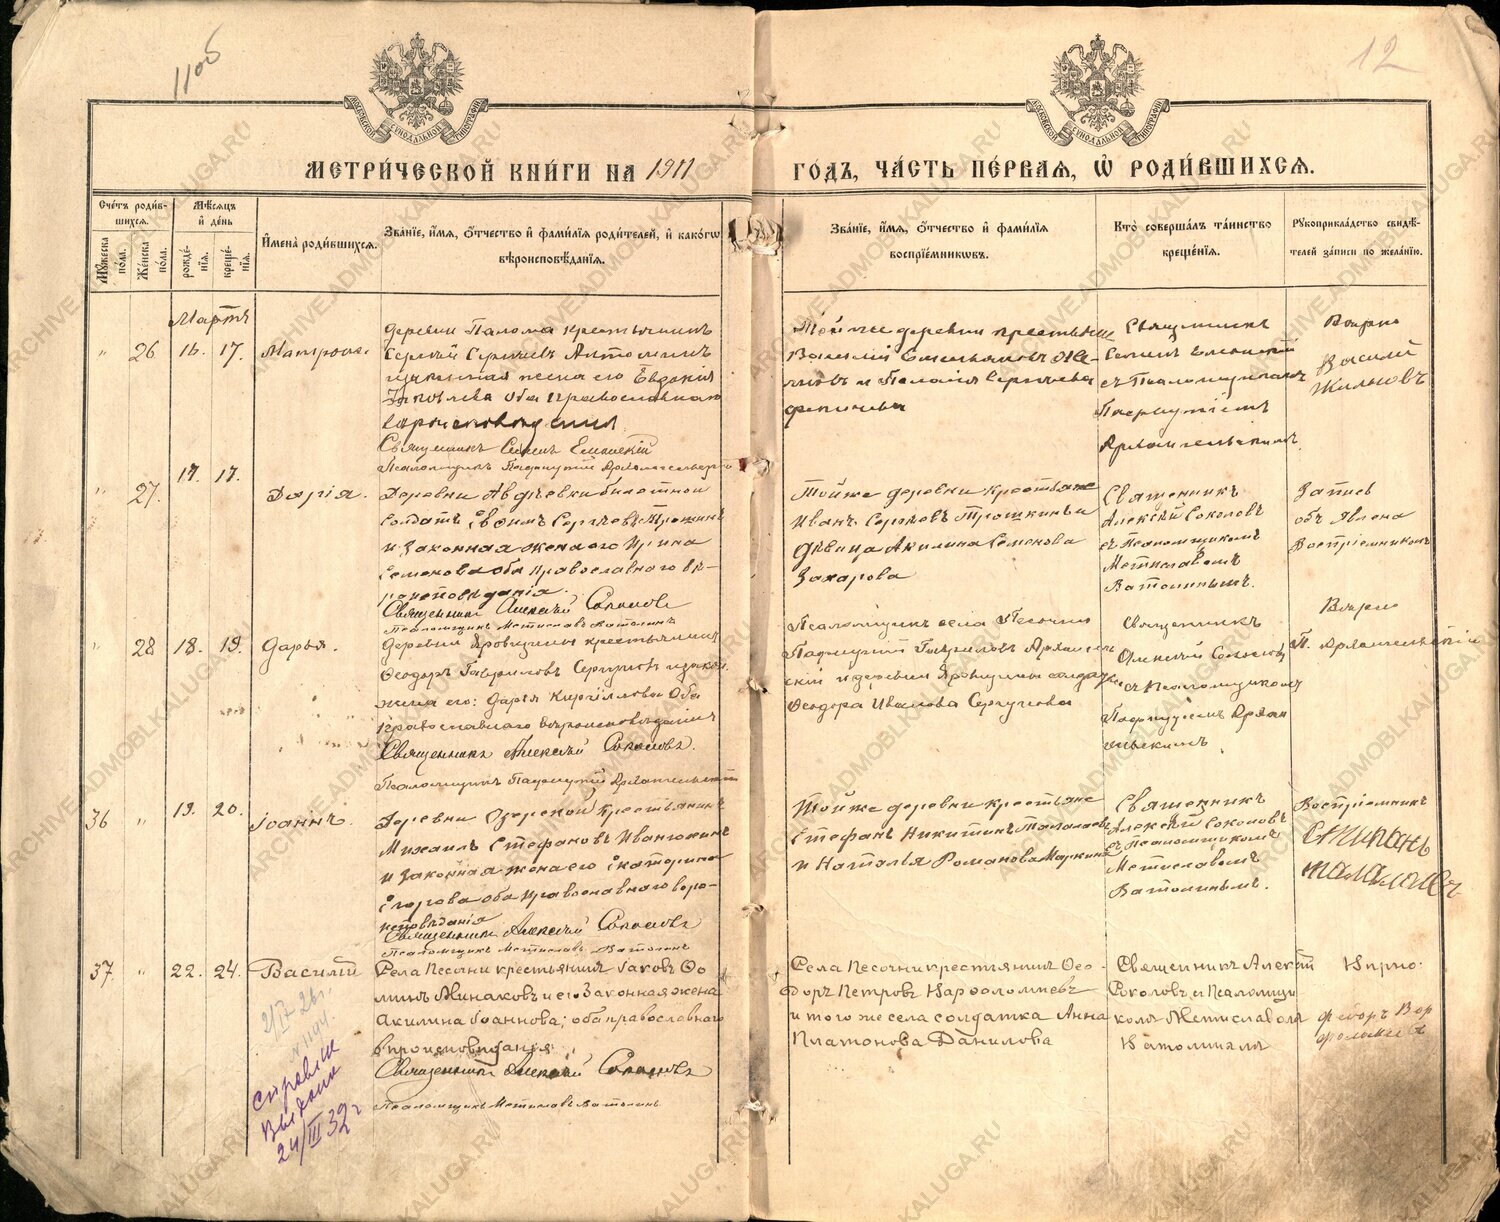 11об
12
МЕТРИ́ЧЕСКОЙ КНИ́ГИ НА 1911
ГОДЪ, ЧА́СТЬ ПЕ́РВАЯ, Ѡ РОДИ́ВШИХСЯ.
Сче́тъ роди́в-
шихся.
Му́жеска по́ла.
Же́нска по́ла.
Мѣ́сяцъ
и де́нь
рожде́-
нія.
креще́-
нія.
Имена̀ роди́вшихся.
Зва́ніе, и́мя, о́тчество и фами́лія роди́телей, и како́гѡ
вѣроисповѣ́данія.
Зва́ніе, и́мя, о́тчество и фами́лія
воспріе́мниковъ.
Кто̀ соверша́лъ та́инство
креще́нія.
Рукоприкла́дство свидѣ́-
телей за́писи по жела́нію.
Мартъ
" 26 16. 17. Матрона.
деревни Палома крестьянинъ
Сергій Сергѣевъ Антошинъ
законная жена его Евдокія
Яковлева оба православнаго
вѣроисповѣданія
Священникъ Семенъ
Псаломщикъ Пафнутій Архангельскій
Той же деревни крестьяне
Василій Емельяновъ Жи-
ловъ и Пелагія Сергѣева
Священникъ
Семенъ
съ Псаломщикомъ
Пафнутіемъ
Архангельскимъ
Вѣрно
Василій
Жиловъ
" 27. 17. 17. Дарія.
Деревни Авдѣевки билетной
солдатъ Евѳимъ Сергѣевъ Трошкинъ
и Законная жена его Ирина
Семенова оба Православнаго вѣ-
роисповѣданія.
Священникъ Алексѣй Соколовъ
Псаломщикъ Метиславъ Ватолинъ
Тойже деревни крестьяне
Иванъ Сергѣевъ Трошкинъ и
дѣвица Акилина Семенова
Захарова
Священникъ
Алексѣй Соколовъ
съ Псаломщикомъ
Метиславомъ
Ватолинымъ.
Запись
объявлена
Воспріемникомъ
" 28 18. 19. Дарья.
Деревни Яровщины крестьянинъ
Ѳеодоръ Гавриловъ Сергуновъ и закон.
жена его: Дарія Кириллова Оба
Православнаго вѣроисповѣданія
Священникъ Алексѣй Соколовъ.
Псаломщикъ Пафнутій Архангельскій
Псаломщикъ села Песочни
Пафнутій Гавриловъ Архангель-
скій и деревни Яровщины солдатка
Ѳеодора Иванова Сергунова
Священникъ
Алексѣй Соколовъ
съ Псаломщикомъ
Пафнутіемъ Архан
гельскимъ
Вѣрно
П. Архангельскій
36 " 19. 20. Іоаннъ.
Деревни Озерской Крестьянинъ
Михаилъ Стефановъ Иванюкинъ
и Законная жена его Екатерина
Егорова оба Православнаго веро-
исповѣданія
Священникъ Алексѣй Соколовъ
Псаломщикъ Метиславъ Ватолинъ
Тойже деревни крестьяне
Стефанъ Никитинъ Талалаевъ
и Наталья Романова Маркина
Священникъ
Алексѣй Соколовъ
съ Псаломщикомъ
Метиславомъ
Ватолинымъ.
Воспріемникъ
Степанъ
Талалаевъ
37 " 22. 24. Василій
Села Песочни крестьянинъ Іаковъ Ѳо-
минъ Минаковъ и его Законная жена
Акилина Іоаннова; оба православнаго
вѣроисповѣданія
Священникъ Алексѣй Соколовъ
Псаломщикъ Метиславъ Ватолинъ
Села Песочни крестьянинъ Ѳео-
доръ Петровъ Варфоломѣевъ
и того же села солдатка Анна
Платонова Данилова
Священникъ Алексѣй
Соколовъ, съ Псаломщи
комъ Метиславомъ
Ватолинымъ
Вѣрно
Федоръ Вар
фоломеевъ
2/IV-26г.
№ 1194
справка
выдана
24/III 32 г